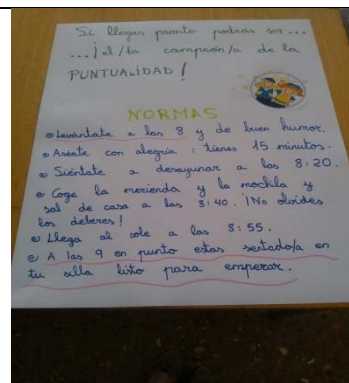 Si llegas pronto podrás ser...
...¡el/la campeón/a de la
PUNTUALIDAD!
NORMAS
Levántate a las 8 y de buen humor.
Aséate con alegría: tienes 15 minutos.
Siéntate a desayunar a las 8:20.
Coge la merienda y la mochila y
sal de casa a las 8:40. ¡No olvides
los deberes!
Llega al cole a las 8:55.
A las 9 en punto estas sentado/a en
tu silla listo para empezar.